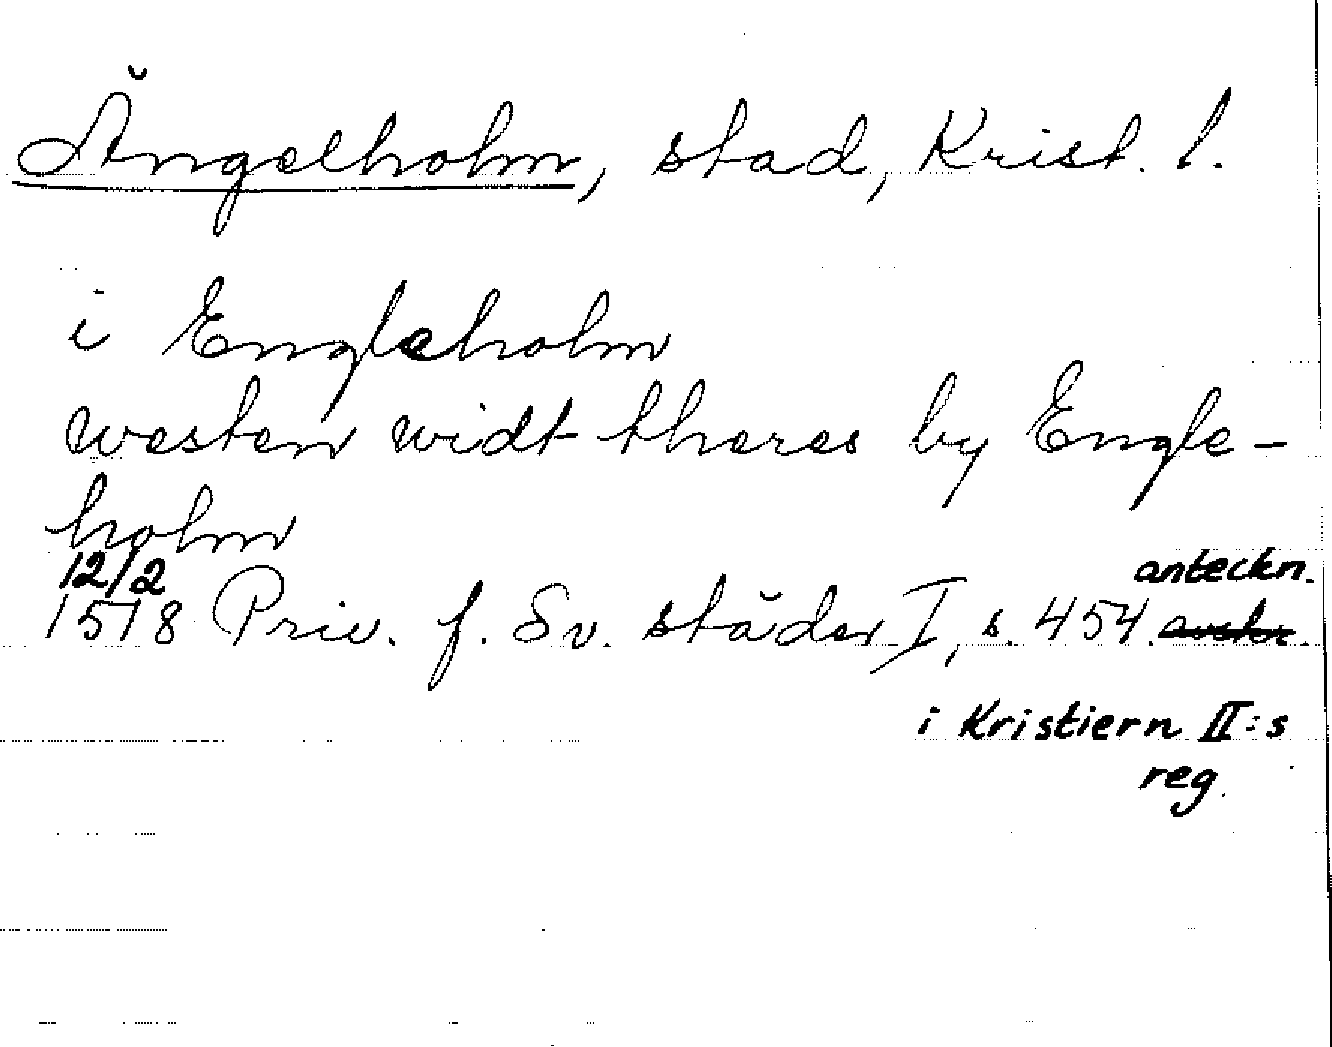 Ängelholm, stad, Krist. l.
i Engleholm
westen widt theres by Engle-
holm
12/2
1518 Priv. f. Sv. städer I, s. 454 avskr.
anteckn.
i Kristiern II:s
reg.